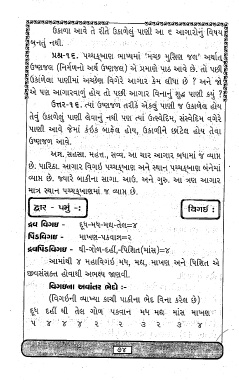 ઉકાળા આવે તે રીતે ઉકાળેલું પાણી આ ૬ આગારોનું વિષય
બનતું નથી.
પ્રશ્ન-૧૬. પચ્ચક્ખાણ ભાષ્યમાં 'મચ્છ મુસિણ જલ' અર્થાત્
ઉષ્ણજલ (નિર્મળનો અર્થ ઉષ્ણજલ) એ પ્રમાણે પાઠ આવે છે. તો પછી
ઉકાળેલા પાણીમાં અચ્છેણ વિગેરે આગાર કેમ લીધા ? અને જો
એ પણ આગારવાળું હોય તો પછી આગાર વિનાનું શુદ્ધ પાણી કયું ?
ઉત્તર-૧૬. ત્યાં ઉષ્ણજલ તરીકે એકલું પાણી જ ઉકાળેલ હોય
તેવું ઉકાળેલું પાણી લેવાનું નથી પણ ત્યાં ઉત્સ્વેદિમ, સંસ્વેદિમ વગેરે
પાણી આવે જેમાં કંઇક બાફેલ હોય, ઉકાળીને છાંટેલ હોય તેવા
ઉષ્ણજલ આવે.
અન્ન. સહસા. મહત્ત., સવ્વ. આ ચાર આગાર બધામાં જ વ્યાપ્ત
છે. પારિઠા. આગાર વિગઇ પચ્ચક્ખાણ અને સ્થાન પચ્ચક્ખાણ બંનેમાં
વ્યાપ્ત છે. જ્યારે બાકીના સાગા. આઉ. અને ગુરુ. આ ત્રણ આગાર
માત્ર સ્થાન પચ્ચક્ખાણમાં જ વ્યાપ્ત છે.
દ્વાર - ૫મું -: વિગઇ :
દ્રવ વિગઇ - દૂધ-મધ-મદ્ય-તેલ=૪
પિંડવિગઇ - માખણ-પકવાન્ન=૨
દ્રવપિંડવિગઇ - ઘી-ગોળ-દહીં-પિશિત(માંસ)=૪
આમાંથી ૪ મહાવિગઇ મધ, મદ્ય, માખણ અને પિશિત એ
જીવસંસક્ત હોવાથી અભક્ષ્ય જાણવી.
વિગઇના અવાંતર ભેદો :-
(વિગઇની વ્યાખ્યા કાચી પાકીના ભેદ વિના કરેલ છે)
દૂધ દહીં ઘી તેલ ગોળ પકવાન મધ મદ્ય માંસ માખણ
૫ ૪ ૪ ૪ ૨ ૨ ૩ ૨ ૩ ૪
૭૪